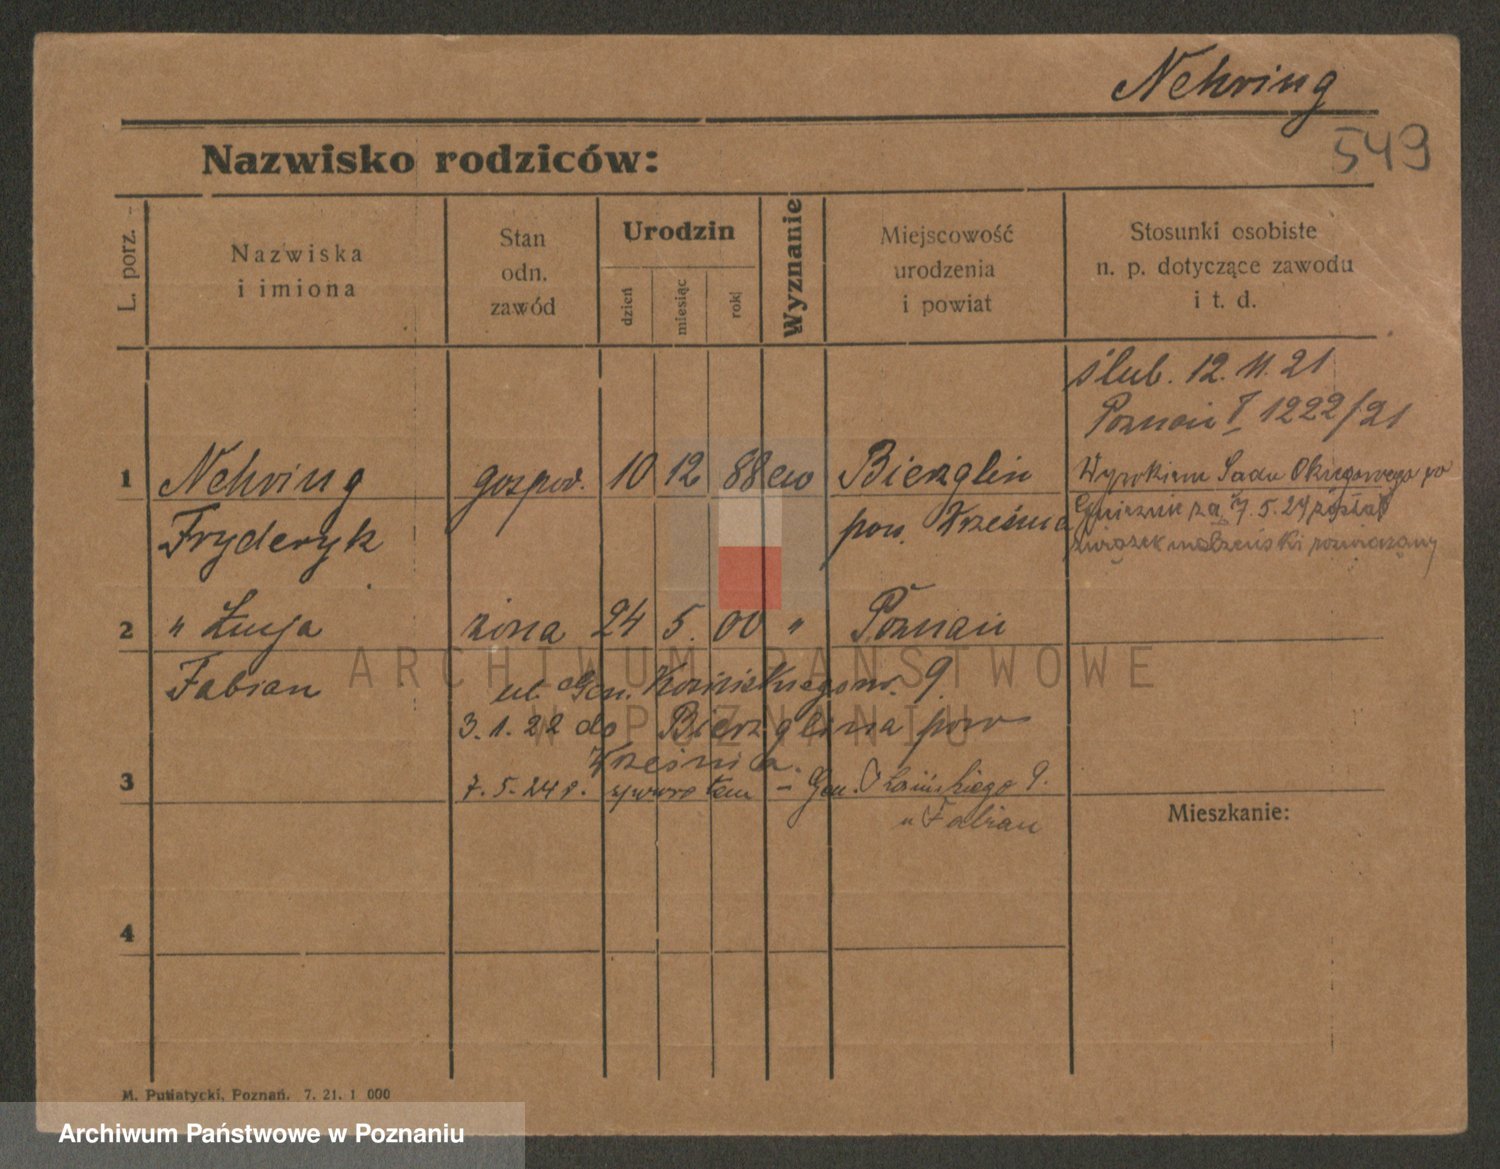 Nehring
549
Nazwisko rodziców:
L. porz.
Nazwiska
i imiona
Stan
odn.
zawód
Urodzin
dzień
miesiąc
rok
Wyznanie
Miejscowość
urodzenia
i powiat
Stosunki osobiste
n. p. dotyczące zawodu
i t. d.
ślub. 12. 11. 21
Poznań I 1222/21
1 Nehring gospod. 10 12 88 ew Bierzglin
Fryderyk pow. Września
Wyrokiem Sądu Okręgowego
Gnieźnie 7. 5. 24 został
związek małżeński rozwiązany
2 " Łucja żona 24 5. 00 " Poznań
Fabian ul. Gen. 9.
3. 1. 22 do Bierzglina pow
Września.
3 7. 5. 24 r. - Gen. 9.
" Fabian
Mieszkanie:
4
M. Putiatycki, Poznań. 7. 21. 1 000
ARCHIWUM PAŃSTWOWE
W POZNANIU
Archiwum Państwowe w Poznaniu